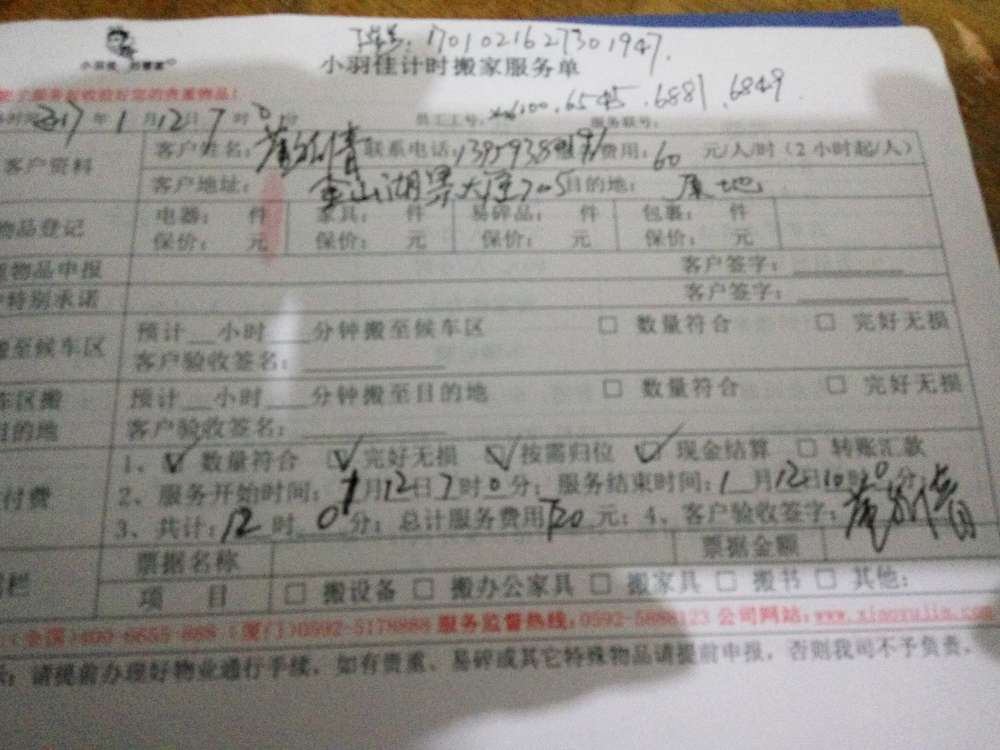 单号:1701021627301947.
小羽佳计时搬家服务单
xm6100.6545.6881.6849
2017年1月12日7时0分 员工工号: 服务联号:
客户资料 客户姓名: 联系电话: 费用:60元/人/时(2小时起/人)
客户地址:金山湖景大厦705目的地:原地
物品登记 电器: 件 家具: 件 易碎品: 件 包裹: 件
保价: 元 保价: 元 保价: 元 保价: 元
物品申报 客户签字:
特别承诺 客户签字:
搬至候车区 预计__小时__分钟搬至候车区 □ 数量符合 □ 完好无损
客户验收签名:
车区搬 预计__小时__分钟搬至目的地 □ 数量符合 □ 完好无损
目的地 客户验收签名:
1、☑ 数量符合 ☑ 完好无损 ☑ 按需归位 ☑ 现金结算 □ 转账汇款
付费 2、服务开始时间:1月12日7时0分;服务结束时间:1月12日10时0分;
3、共计:12时0分;总计服务费用720元;4、客户验收签字:
栏 票据名称 票据金额
项 目 □ 搬设备 □ 搬办公家具 □ 搬家具 □ 搬书 □ 其他:
(全国)400-6655-888 (厦门)0592-5178888 服务监督热线:0592-5888123 公司网站:www.xiaoyujia.com
请提前办理好物业通行手续,如有贵重、易碎或其它特殊物品请提前申报,否则我司不予负责。